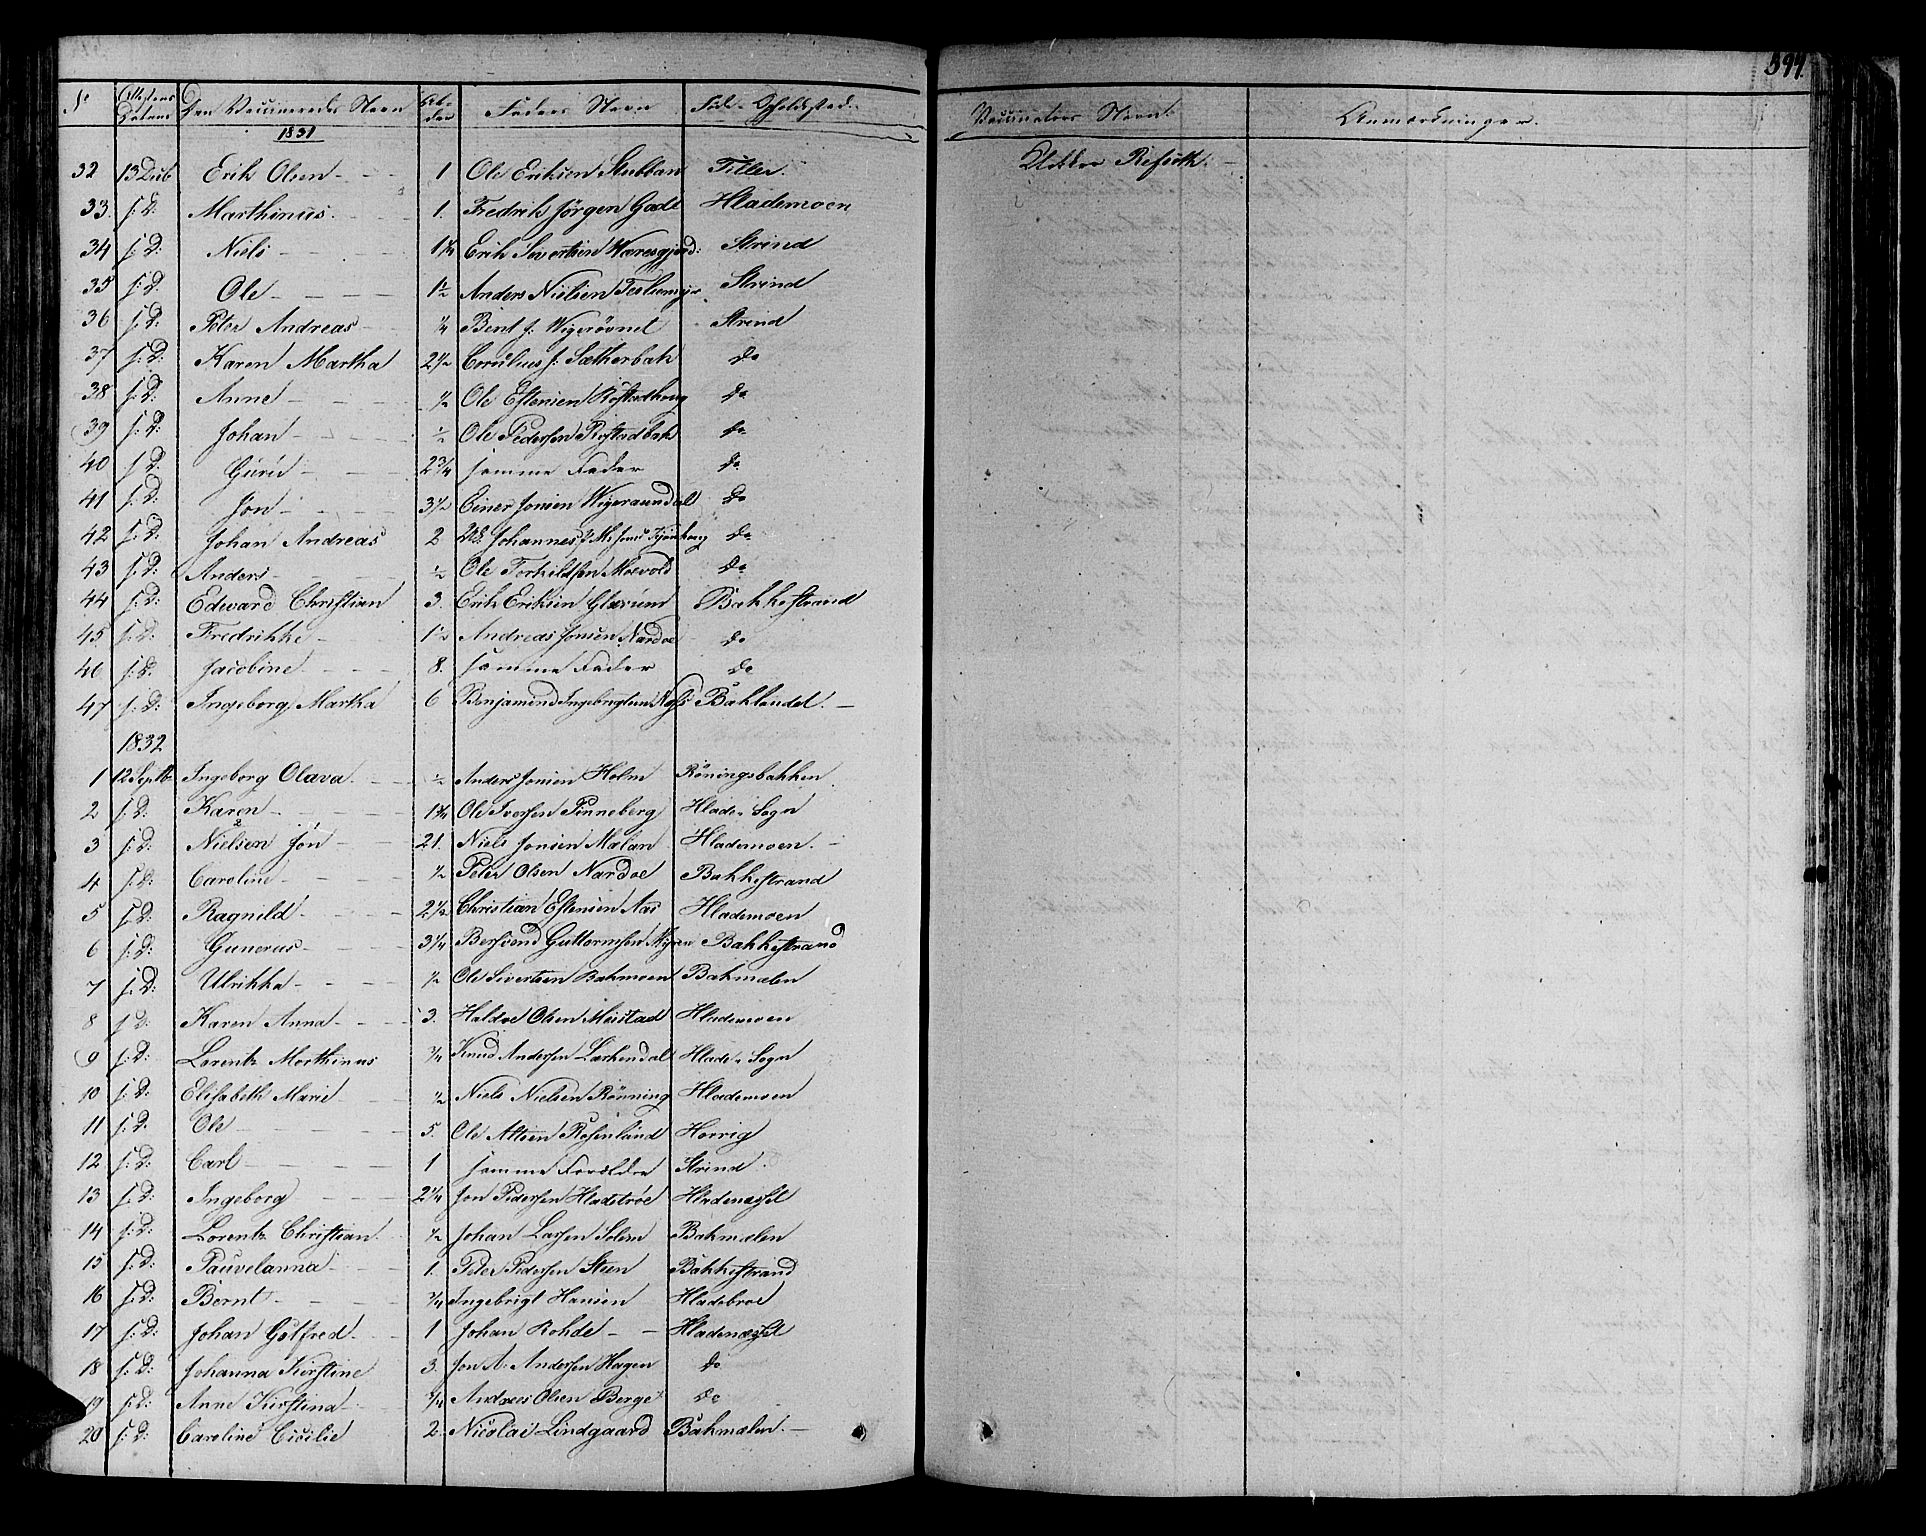 394.
No Attestens Datum Den Vaccineredes Navn Alderen Faders Navn Opholdssted Vaccinators Navn Anmærkninger.
1831
32 13 Decb Erik Olsen 1 Ole Eriksen Stubban Tiller Refseth
33. s: D: Marthinus 1. Fredrik Jørgen Gade Hlademoen
34 s: D: Niels 1¼ Erik Sivertsen Strind
35 s: D: Ole 1½ Anders Nielsen Strind
36 s: D: Peter Andreas ¼ Bent Strind
37 s: D: Karen Martha 2½ Cornelius s: Sætherbak do
38 s: D: Anne ½ Ole Estensen do
39 s: D: Johan ½ Ole Pedersen do
40 s: D: Guru 2¾ samme Fader do
41 s: D: Jon 3½ Einer Jonsen do
42 s: D: Johan Andreas 2 Johannes do
43 s: D: Anders ½ Ole Torkildsen Moevold do
44 s: D: Edward Christian 3. Erik Eriksen Bakkestrand
45 s: D: Fredrikke 1½ Andreas Jonsen Nardoe do
46 s: D: Jacobine 8. samme Fader do
47 s: D: Ingeborg Martha 6 Benjamind Ingebrigtsen Baklandet.
1832
1 12 Septb Ingeborg Olava ½ Anders Jonsen Holm Röningsbakken
2 s: D: Karen 1¼ Ole Iversen Pinneberg Hlade Sogn
3 s: D: Nielsen Jon 21. Niels Jonsen Malan Hlademoen.
4 s: D: Caroline ½ Peter Olsen Nardoe Bakkestrand
5 s: D: Ragnild 2½ Christian Estensen Aas Hlademoen
6 s: D: Gunerus 3¼ Bersvend Guttormsen Myren Bakkestrand
7 s: D: Ulrikka ½ Ole Sivertsen Bakmoen Bakmælen
8 s: D: Karen Anna 3. Haldoe Olsen Mustad Hlademoen
9 s: D: Lorentz Morthinus ¾ Knud Andersen Lerkendal Hlade Sogn
10 s: D: Elisabeth Marie ½ Niels Nielsen Rönning Hlademoen
11 s: D: Ole 5. Ole Altsen Rosenland Horrig
12 s: D: Carl 1 samme Forældre Strind
13 s: D: Ingeborg 2¼ Jon Pedersen Hladetröe Hladenæsset
14 s: D: Lorentz Christian ½ Johan Larsen Solem Bakmælen
15 s: D: Pauvelanna 1. Peter Pedersen Steen Bakkestrand
16 s: D: Bernt ¾ Ingebrigt Hansen Hladebroe
17 s: D: Johan Gotfred 1 Johan Rohde Hladenæsset
18 s: D: Johanna Kirstine 3. Jon A. Andersen Hagen do
19 s: D: Anne Kirstina ¾ Andreas Olsen Berge do
20 s: D: Caroline Cicilie 2. Nicolai Lindgaard Bakmælen.